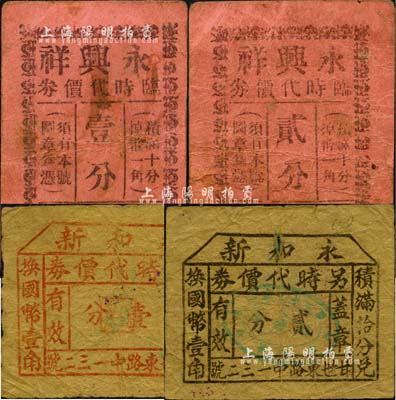 上海陽明拍賣
永興祥
臨時代價券
積滿十分
掉幣一角
壹分
須有本號
圖章為憑
上海陽明拍賣
永興祥
臨時代價券
積滿十分
掉幣一角
貳分
須有本號
圖章為憑
和新
時代價券
壹分
有效
換國幣壹角
東路中一三二號
上海陽明拍賣
永和新
另時代價券
積滿拾分兌
蓋章
貳分
有效
換國幣壹角
世東路中一三二號
上海陽明拍賣